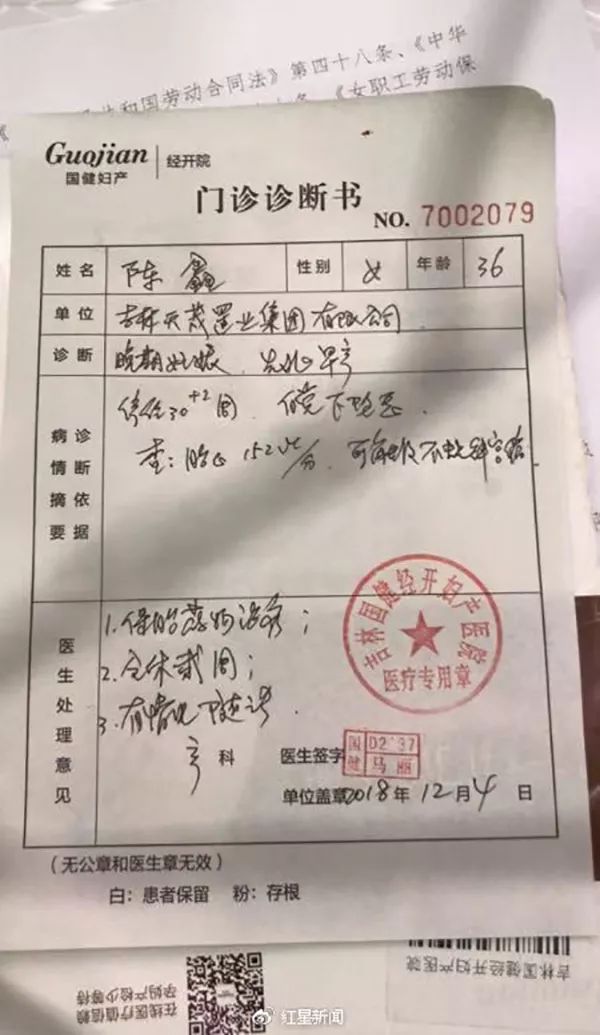 和国劳动合同法》第四十八条、《中华
《女职工劳动保
Guojian 经开院
国健妇产
门诊诊断书
NO. 7002079
姓名 陈鑫 性别 女 年龄 36
单位 吉林天茂置业集团有限公司
诊断 晚期妊娠、先兆早产
病情摘要 诊断依据
停经30+2周
查:胎心152次/分
医生处理意见
1.保胎药物治疗;
2.全休贰周;
3.有情况随诊.
产科 医生签字 国健 D2137 马丽
单位盖章 2018年12月4日
吉林国健经开妇产医院
医疗专用章
(无公章和医生章无效)
白:患者保留 粉:存根
在线医疗值信赖
孕妈产检少等待
吉林国健经开妇产医院
红星新闻